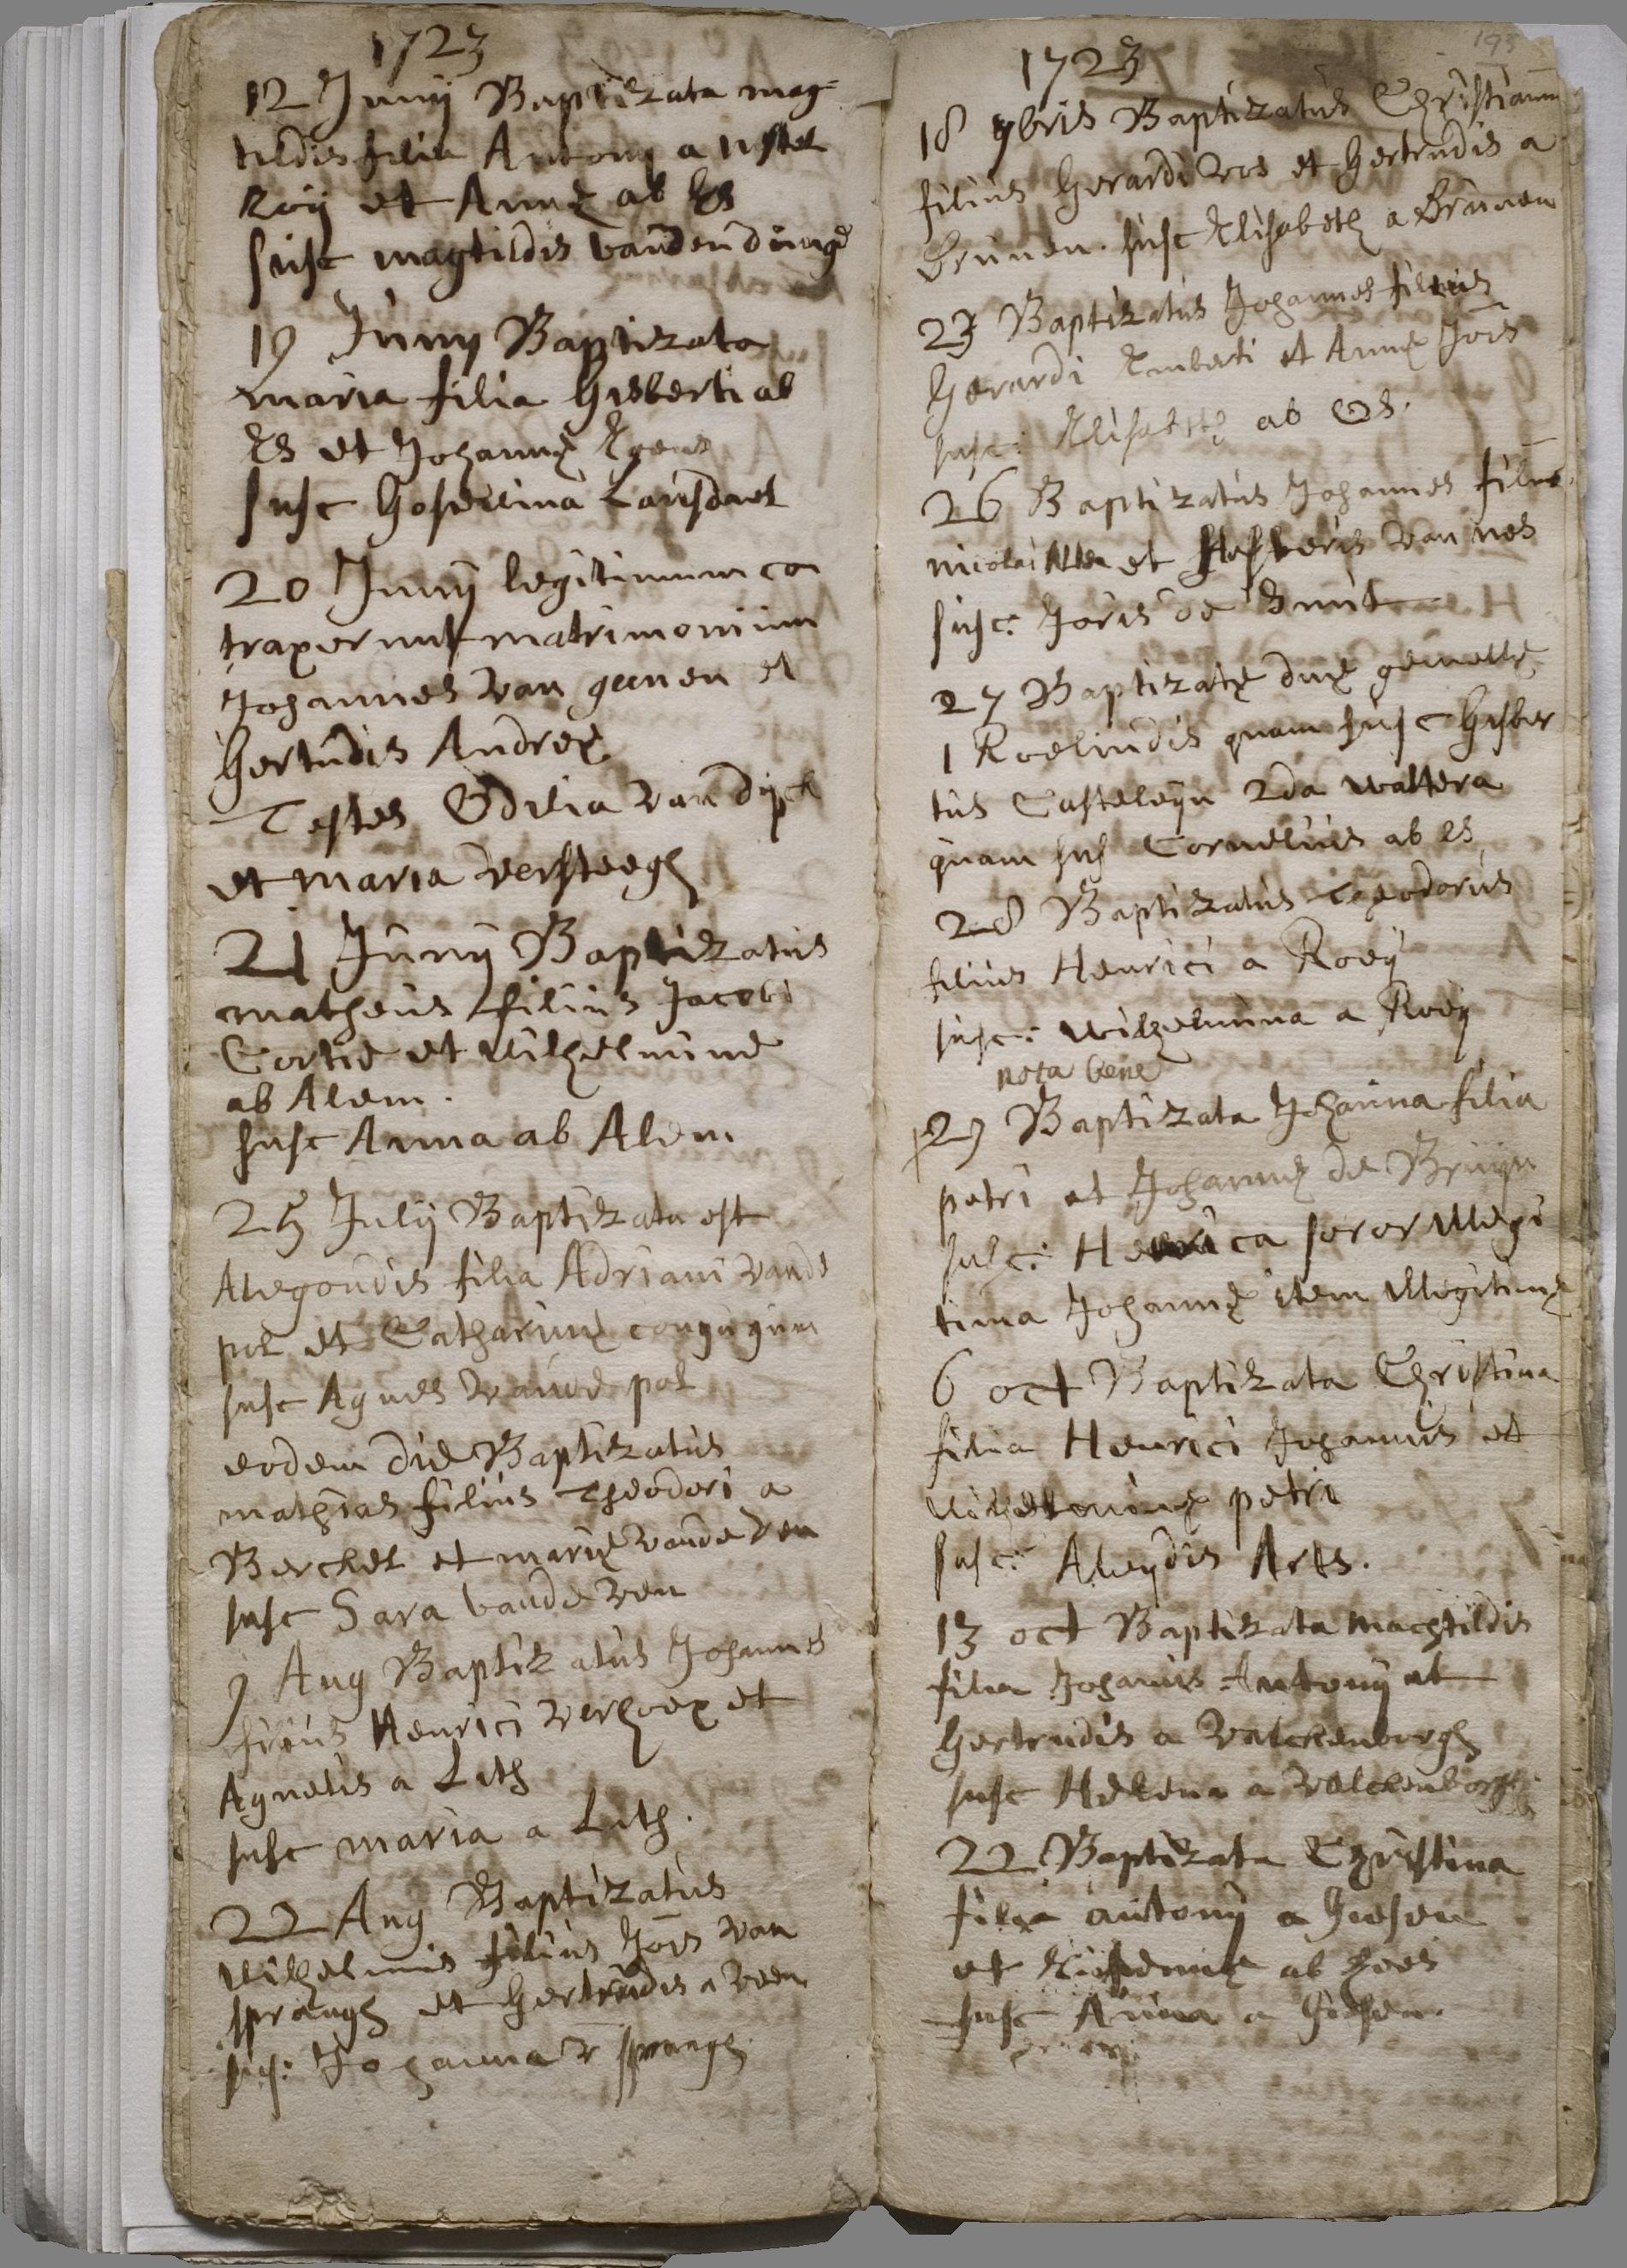 1723
12 Junij Baptizata mag=
tildis filia Antonij a nistel
Roij et Annę ab Es
susc magtildis vanden dunge
19 Junij Baptizata
maria filia Gisberti ab
Es et Johannę
susc Goselina Lansdaet
20 Junij legitimum co
traxerunt matrimonium
Johannes van geenen et
Gertudis Andreę
Testes Odilia van dijck
et maria versteegh
21 Junij Baptizatus
matheus filius Jacobi
Cortie et Wilhelmine
ab Alem.
susc Anna ab Alem
25 Julij Baptizata est
Alegoudis filia Adriani vande
pol et Catharinę conjugum
susc Agnes vande pol
eodem die Baptizatus
mathias filius Theodori a
Berchel et marię vande ven
susc Sara vande ven
9 Aug Baptizatus Johannes
filius Henrici verhoex et
Agnetis a Lith
susc maria a Lith.
22 Aug Baptizatus
Wilhelmus filius Jois van
sprangh et Gertrudis a veen
sus: Johanna v sprangh
193
1723
18 7bris Baptizatus Christianus
filius Gerardi vos et Gertrudis a
Brunen. susc Elisabeth a Brunen
23 Baptizatus Johannes filius
Gerardi Emberti et Annę Jois
susc: Elisabeth ab Os.
26 Baptizatus Johannes filius
nicolai et Hesteris van nes
susc: Joris de
27 Baptizatę duę gemellę
1 Roelindis quam susc Gisber
tus Casteleijn 2da waltera
quam sus Cornelius ab es
28 Baptizatus Theodorus
filius Henrici a Roeij
susc: wilhelmina a Roeij
nota bene
29 Baptizata Johanna filia
petri et Johannę de Bruijn
susc: Henrica soror illegi
tima Johannę item illegitimę
6 oct Baptizata Christina
filia Henrici Johannis et
Wilhelminę petri
susc: Aleijdis Arts.
13 oct Baptizata Machtildis
filia Johannis Antonij et
Gertrudis a Valckenborgh
susc Helena a valckenborgh
22 Baptizata Christina
filia antonij a Giesen
et ab hees
susc Anna a Giesen.